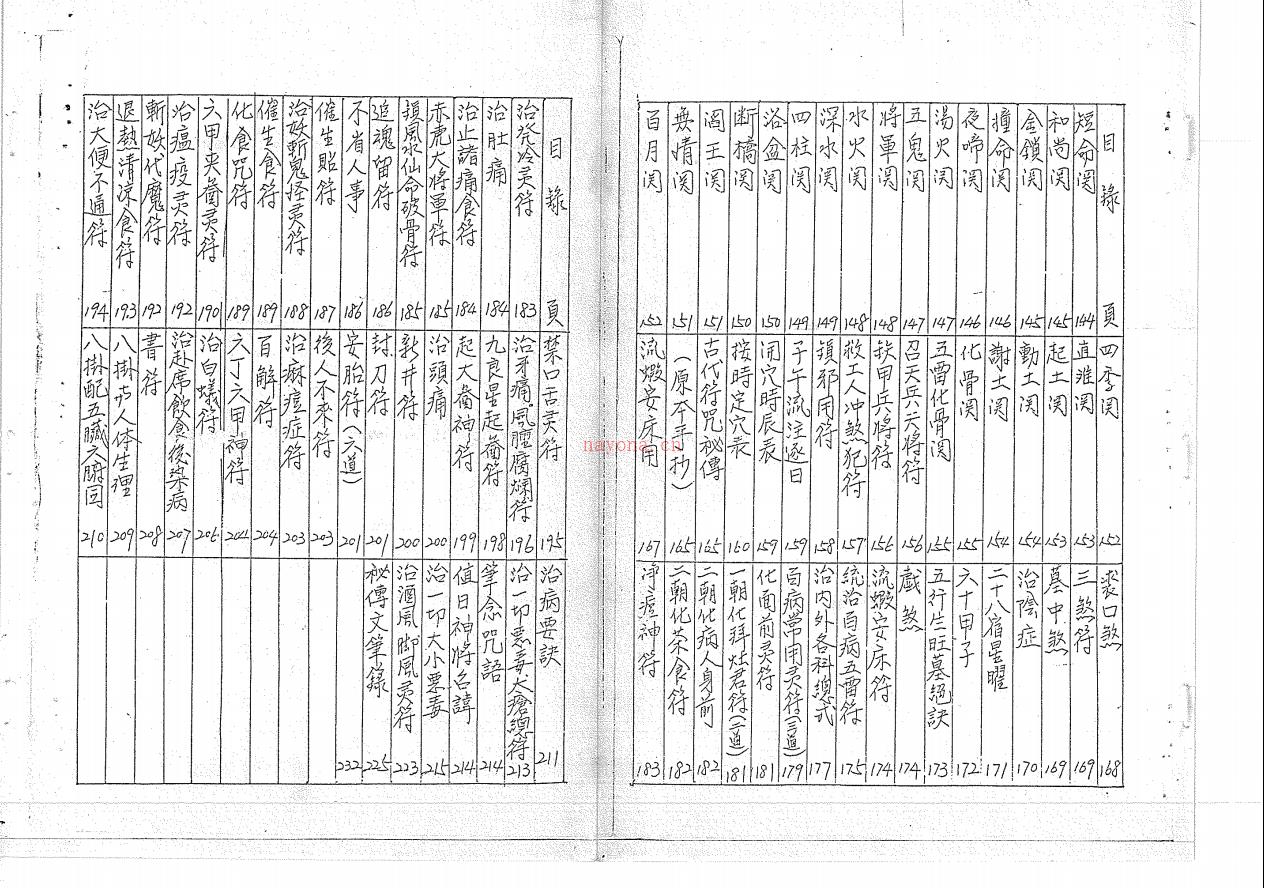 目錄 頁
短命関 144
和尚関 145
金鎖関 145
撞命関 146
夜啼関 146
湯火関 147
五鬼関 147
將軍関 148
水火関 148
深水関 149
四柱関 149
浴盆関 150
断橋関 150
阎王関 151
無情関 151
百月関 152
四季関 152
直难関 153
起土関 153
動土関 154
謝土関 154
化骨関 155
五雷化骨関 155
召天兵六将符 156
鉄甲兵將符 156
救工人冲煞犯符 157
鎮邪用符 158
子午流注逐日 159
用穴時辰表 159
按時定穴表 160
古代符咒祕傳 165
(原本手抄) 165
流煅安床用 167
168
三煞符 169
墓中煞 169
治陰症 170
二十八宿星曜 171
六十甲子 172
五行生旺墓絕訣 173
戲煞 174
流煅安床符 174
統治百病五雷符 175
治内外各科總式 177
百病常用灵符(三道) 179
化面前灵符 181
一朝化拜灶君符(二道) 181
二朝化病人身前 182
三朝化茶食符 182
淨瘟神符 183
目錄 頁
治發冷灵符 183
治肚痛 184
治止諸痛食符 184
赤虎大將軍符 185
鎮風水仙命破骨符 185
追魂留符 186
不省人事 186
催生貼符 187
治妖斬鬼怪灵符 188
催生食符 189
化食咒符 189
六甲夹斋灵符 190
治瘟疫灵符 192
斬妖代魔符 192
退熱清凉食符 193
治大便不通符 194
禁口舌灵符 195
治牙痛。風膧腐爛符 196
九良星起斋符 198
起大斋神符 199
治頭痛 200
新井符 200
封刀符 201
安胎符(六道) 201
後人不來符 203
治麻痘症符 203
百解符 204
六丁六甲神符 204
治白蟻符 206
治赴席飲食後染病 207
書符 208
八掛與人体生理 209
八掛配五臓六腑図 210
治病要訣 211
治一切悪毒大瘡總符 213
筆念咒語 214
值日神將名諱 214
治一切大小悪毒 215
治酒風脚風灵符 223
祕傳文筆錄 225
232
nayona.cn